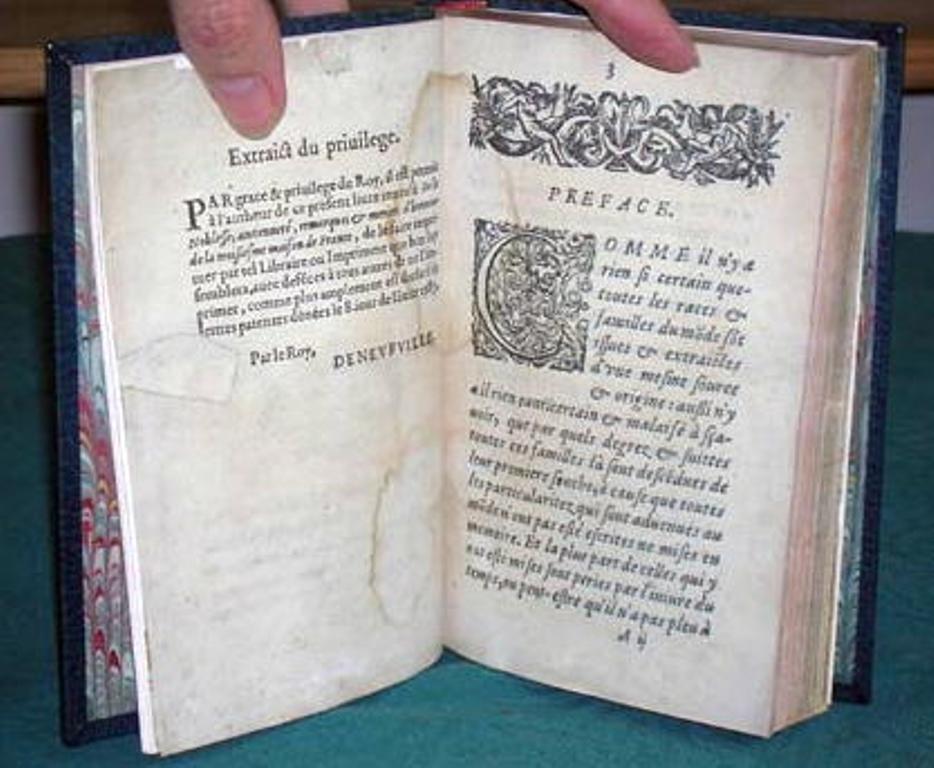 Extraict du priuilege.
PAR grace & priuilege du Roy, il est permis
à l'autheur de ce present liure
Noblesse, ancienneté, remarques &
de la maison de France, de le faire
mer par tel Libraire ou Imprimeur que bon luy
semblera, auec defẽces à tous autres de
primer, comme plus amplement est
lettres patentes dõnées le 8. iour de
Par le Roy, DENEVFVILLE.
3
PREFACE.
COMME il n'y a
rien si certain que
toutes les races &
familles du mõde soiẽt
issues & extraictes
d'vne mesme source
& origine: aussi n'y
a il rien tant certain & malaisé à sça-
uoir, que par quels degrez & suittes
toutes ces familles là sont descẽdues de
leur premiere souche, à cause que toutes
les particularitez qui sont aduenues au
mõde n'ont pas esté escrites ne mises en
memoire. Et la plus part de celles qui y
ont esté mises sont peries par l'iniure du
temps, ou peut-estre qu'il n'a pas pleu à
A ij